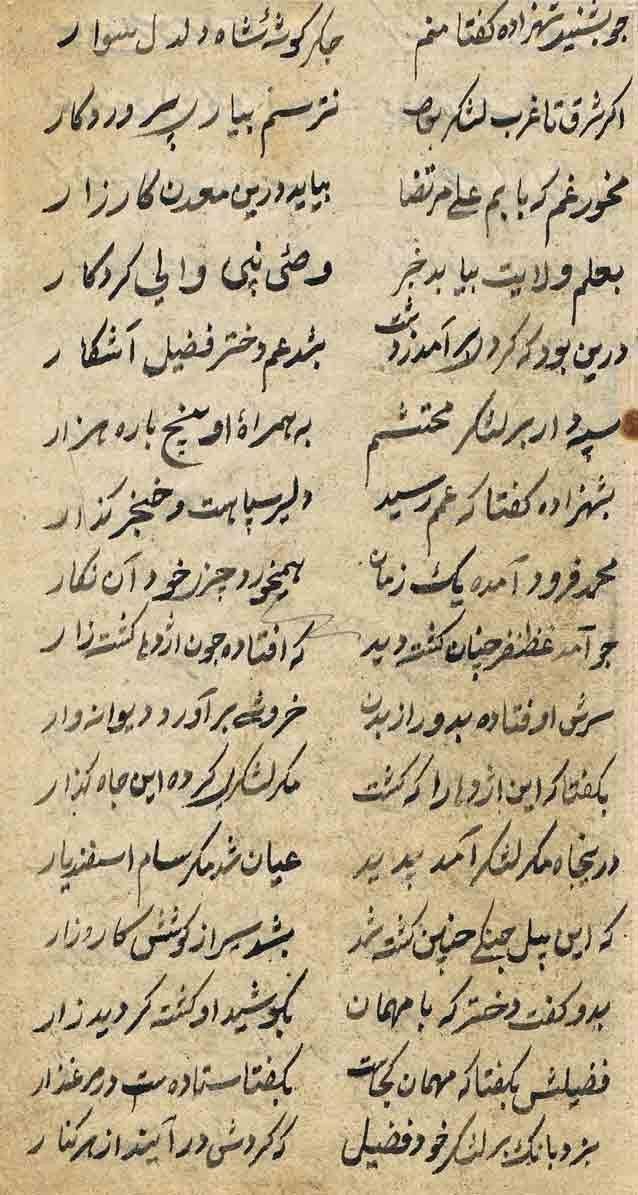 چو بشنید شهزاده کفتا منم جکر کوشهٔ شاه دلدل سوار
اکر شرق تا غرب لشکر بود نترسم بیاری پروردکار
مخور غم که بابم علی مرتضا بیاید درین معدن کارزار
بعلم ولایت بیابد خبر وصی نبی والی کردکار
درین بود که کرد برآمد ز دشت بشد عم دختر فضیل آشکار
سپهدار بر لشکر محتشم به همراهٔ او پنج باره هزار
بشهزاده کفتا که عمم رسید دلیر سپاهست و خنجر کذار
محمد فرود آمده یک زمان همیخورد چیز خود آن نکار
جو آمد غظنفر چنان کشته دید که افتاده جون اژدها کشته زار
سرش اوفتاده بدور از بدن خروشی برآورد دیوانه وار
بکفتا که این اژدها را که کشت مکر لشکری کرده این جاه کذار
درینجاه مکر لشکر آمد پدید عیان شد مکر سام اسفندیار
که این پیل جنکی چنین کشته شد بشد سیر از کوشش کاروزار
بدو کفت دختر که با مهمان بکوشید او کشته کردید زار
فضیلش بکفتا که مهمان کجاست بکفتا ستاده ست در مرغذار
بزد بانک بر لشکر خود فضیل که کردش درآیند از هر کنار